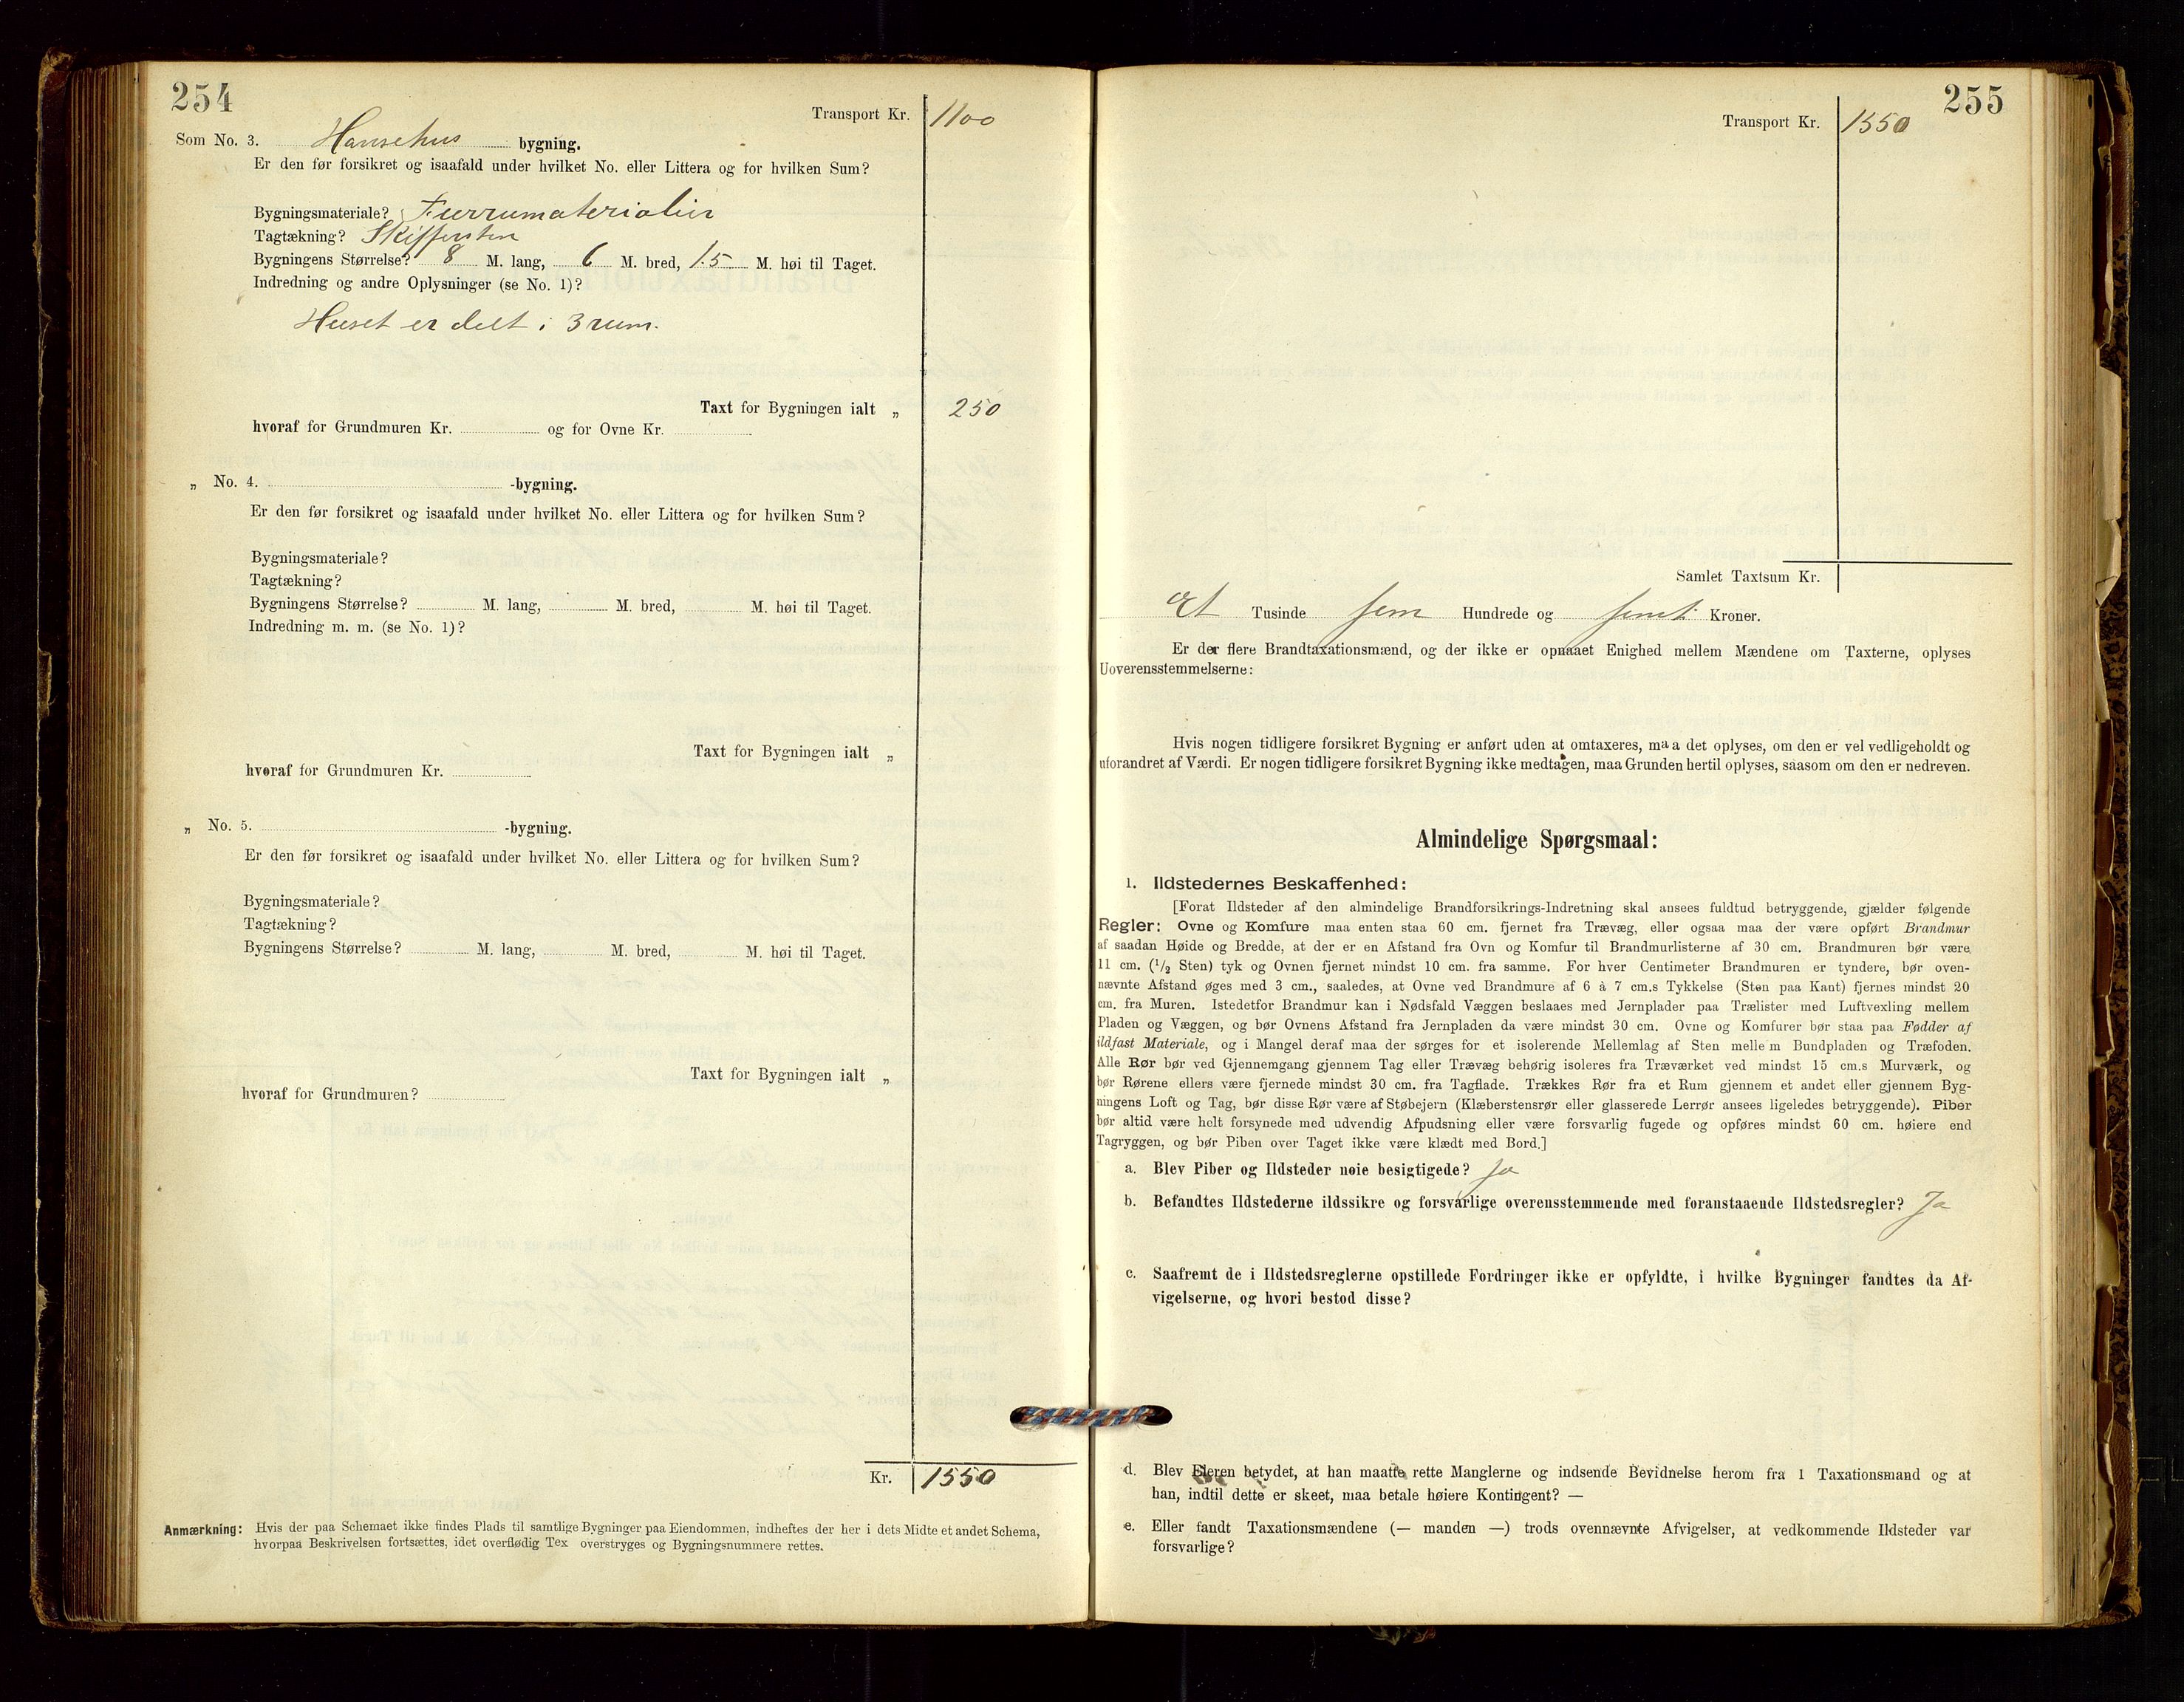 254
Transport Kr. 1100
Som No. 3. Hønsehus bygning.
Er den før forsikret og isaafald under hvilket No. eller Littera og for hvilken Sum?
Bygningsmateriale? Furrumaterialier
Tagtækning? Skiffersten
Bygningens Størrelse? 8 M. lang, 6 M. bred, 1.5 M. høi til Taget.
Indredning og andre Oplysninger (se No. 1)?
Huset er delt i 3 rum.
Taxt for Bygningen ialt „ 250
hvoraf for Grundmuren Kr. og for Ovne Kr.
„ No. 4. -bygning.
Er den før forsikret og isaafald under hvilket No. eller Littera og for hvilken Sum?
Bygningsmateriale?
Tagtækning?
Bygningens Størrelse? M. lang, M. bred, M. høi til Taget.
Indredning m. m. (se No. 1)?
Taxt for Bygningen ialt „
hvoraf for Grundmuren Kr.
„ No. 5. -bygning.
Er den før forsikret og isaafald under hvilket No. eller Littera og for hvilken Sum?
Bygningsmateriale?
Tagtækning?
Bygningens Størrelse? M. lang, M. bred, M. høi til Taget.
Taxt for Bygningen ialt „
hvoraf for Grundmuren?
Kr. 1550
Anmærkning: Hvis der paa Schemaet ikke findes Plads til samtlige Bygninger paa Eiendommen, indheftes der her i dets Midte et andet Schema,
hvorpaa Beskrivelsen fortsættes, idet overflødig Tex overstryges og Bygningsnummere rettes.
255
Transport Kr. 1550
Samlet Taxtsum Kr.
Et Tusinde fem Hundrede og femti Kroner.
Er der flere Brandtaxationsmænd, og der ikke er opnaaet Enighed mellem Mændene om Taxterne, oplyses
Uoverensstemmelserne:
Hvis nogen tidligere forsikret Bygning er anført uden at omtaxeres, maa det oplyses, om den er vel vedligeholdt og
uforandret af Værdi. Er nogen tidligere forsikret Bygning ikke medtagen, maa Grunden hertil oplyses, saasom om den er nedreven.
Almindelige Spørgsmaal:
1. Ildstedernes Beskaffenhed:
[Forat Ildsteder af den almindelige Brandforsikrings-Indretning skal ansees fuldtud betryggende, gjælder følgende
Regler: Ovne og Komfure maa enten staa 60 cm. fjernet fra Trævæg, eller ogsaa maa der være opført Brandmur
af saadan Høide og Bredde, at der er en Afstand fra Ovn og Komfur til Brandmurlisterne af 30 cm. Brandmuren bør være
11 cm. (1/2 Sten) tyk og Ovnen fjernet mindst 10 cm. fra samme. For hver Centimeter Brandmuren er tyndere, bør oven-
nævnte Afstand øges med 3 cm., saaledes, at Ovne ved Brandmure af 6 à 7 cm.s Tykkelse (Sten paa Kant) fjernes mindst 20
cm. fra Muren. Istedetfor Brandmur kan i Nødsfald Væggen beslaaes med Jernplader paa Trælister med Luftvexling mellem
Pladen og Væggen, og bør Ovnens Afstand fra Jernpladen da være mindst 30 cm. Ovne og Komfurer bør staa paa Fødder af
ildfast Materiale, og i Mangel deraf maa der sørges for et isolerende Mellemlag af Sten mellem Bundpladen og Træfoden.
Alle Rør bør ved Gjennemgang gjennem Tag eller Trævæg behørig isoleres fra Træværket ved mindst 15 cm.s Murværk, og
bør Rørene ellers være fjernede mindst 30 cm. fra Tagflade. Trækkes Rør fra et Rum gjennem et andet eller gjennem Byg-
ningens Loft og Tag, bør disse Rør være af Støbejern (Klæberstensrør eller glasserede Lerrør ansees ligeledes betryggende). Piber
bør altid være helt forsynede med udvendig Afpudsning eller være forsvarlig fugede og opføres mindst 60 cm. høiere end
Tagryggen, og bør Piben over Taget ikke være klædt med Bord.]
a. Blev Piber og Ildsteder nøie besigtigede? ja
b. Befandtes Ildstederne ildssikre og forsvarlige overensstemmende med foranstaaende Ildstedsregler? Ja
c. Saafremt de i Ildstedsreglerne opstillede Fordringer ikke er opfyldte, i hvilke Bygninger fandtes da Af-
vigelserne, og hvori bestod disse?
d. Blev Eieren betydet, at han maatte rette Manglerne og indsende Bevidnelse herom fra 1 Taxationsmand og at
han, indtil dette er skeet, maa betale høiere Kontingent? —
e. Eller fandt Taxationsmændene (— manden —) trods ovennævnte Afvigelser, at vedkommende Ildsteder var
forsvarlige?